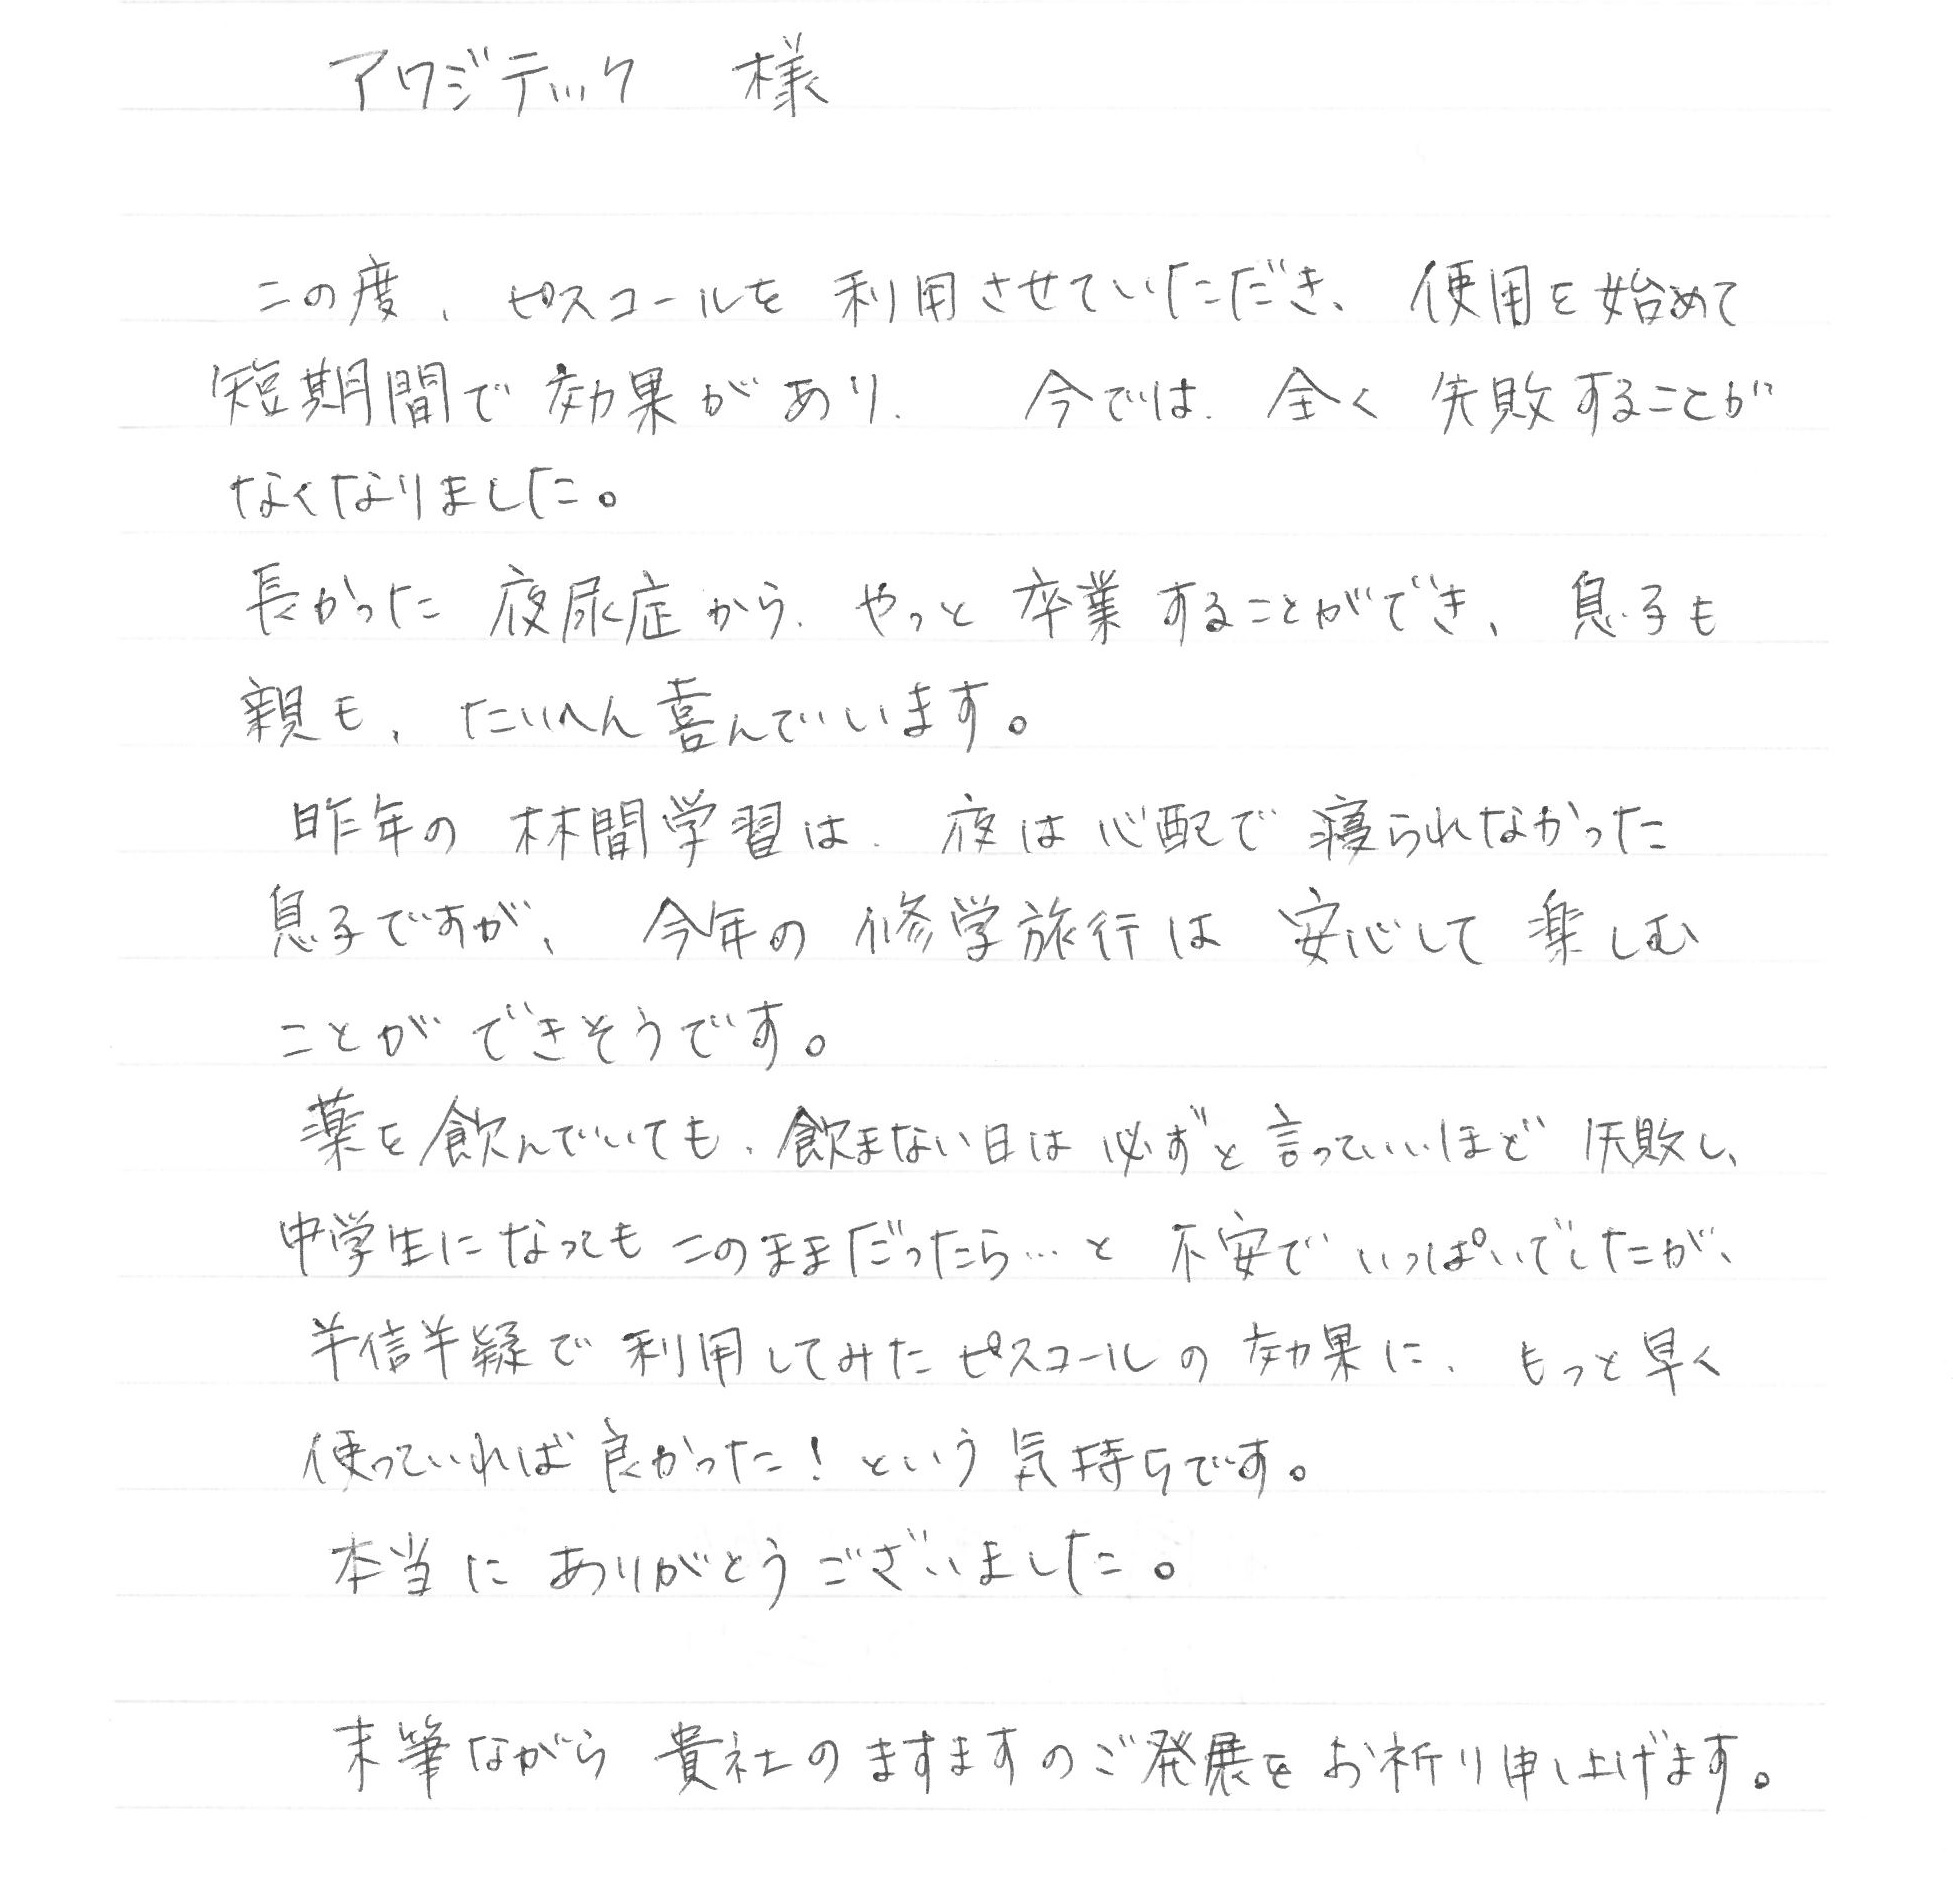 アワジテック 様
この度、ピスコールを利用させていただき、使用を始めて
短期間で効果があり、今では、全く失敗することが
なくなりました。
長かった夜尿症から、やっと卒業することができ、息子も
親も、たいへん喜んでいます。
昨年の林間学習は、夜は心配で寝られなかった
息子ですが、今年の修学旅行は安心して楽しむ
ことができそうです。
薬を飲んでいても、飲まない日は必ずと言っていいほど失敗し、
中学生になってもこのままだったら…と不安でいっぱいでしたが、
半信半疑で利用してみたピスコールの効果に、もっと早く
使っていれば良かった!という気持ちです。
本当にありがとうございました。
末筆ながら貴社のますますのご発展をお祈り申し上げます。